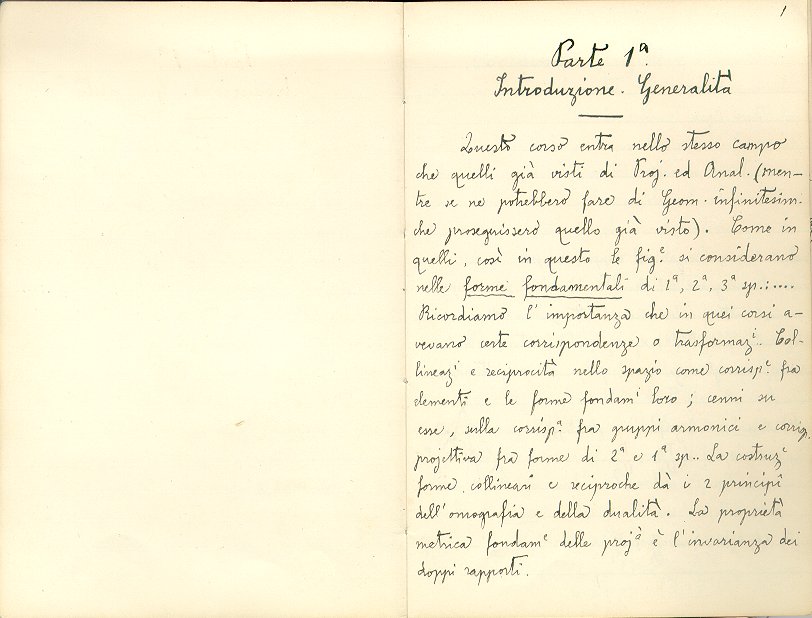 1
Parte 1ª.
Introduzione. Generalità
Questo corso entra nello stesso campo
che quelli già visti di Proj. ed Anal. (men-
tre se ne potrebbero fare di Geom. infinitesim.
che proseguissero quello già visto). Come in
quelli, così in questo le figᵉ si considerano
nelle forme fondamentali di 1ª, 2ª, 3ª sp.:....
Ricordiamo l'importanza che in quei corsi a-
vevano certe corrispondenze o trasformazⁱ.. Col-
lineazⁱ e reciprocità nello spazio come corrispᵉ fra
elementi e le forme fondamⁱ loro; cenni su
esse, sulla corrispᵃ. fra gruppi armonici e corrisp.
projettiva fra forme di 2ª e 1ª sp.. La costruzᵉ
forme collineari e reciproche dà i 2 principî
dell'omografia e della dualità. La proprietà
metrica fondamᵉ delle projᵃ è l'invarianza dei
doppi rapporti.